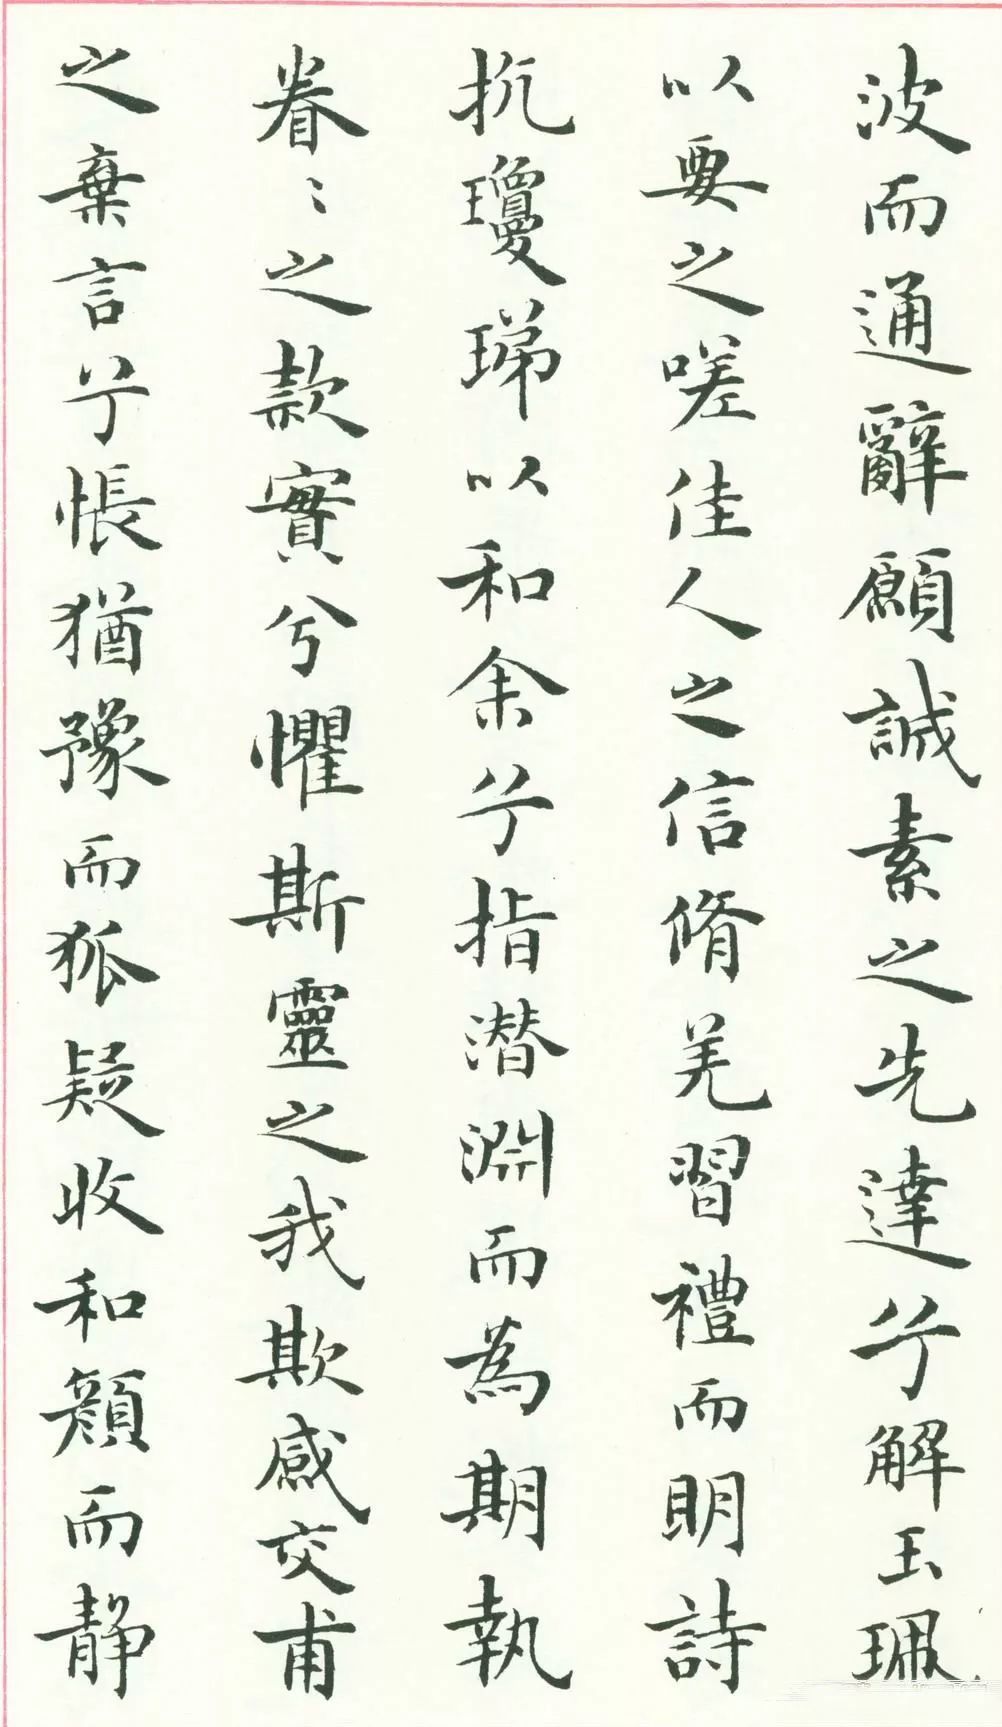 波而通辭願誠素之先達兮解玉珮
以要之嗟佳人之信脩羌習禮而明詩
抗瓊珶以和余兮指潜淵而為期執
眷〻之款實兮懼斯靈之我欺感交甫
之棄言兮悵猶豫而狐疑收和顔而静